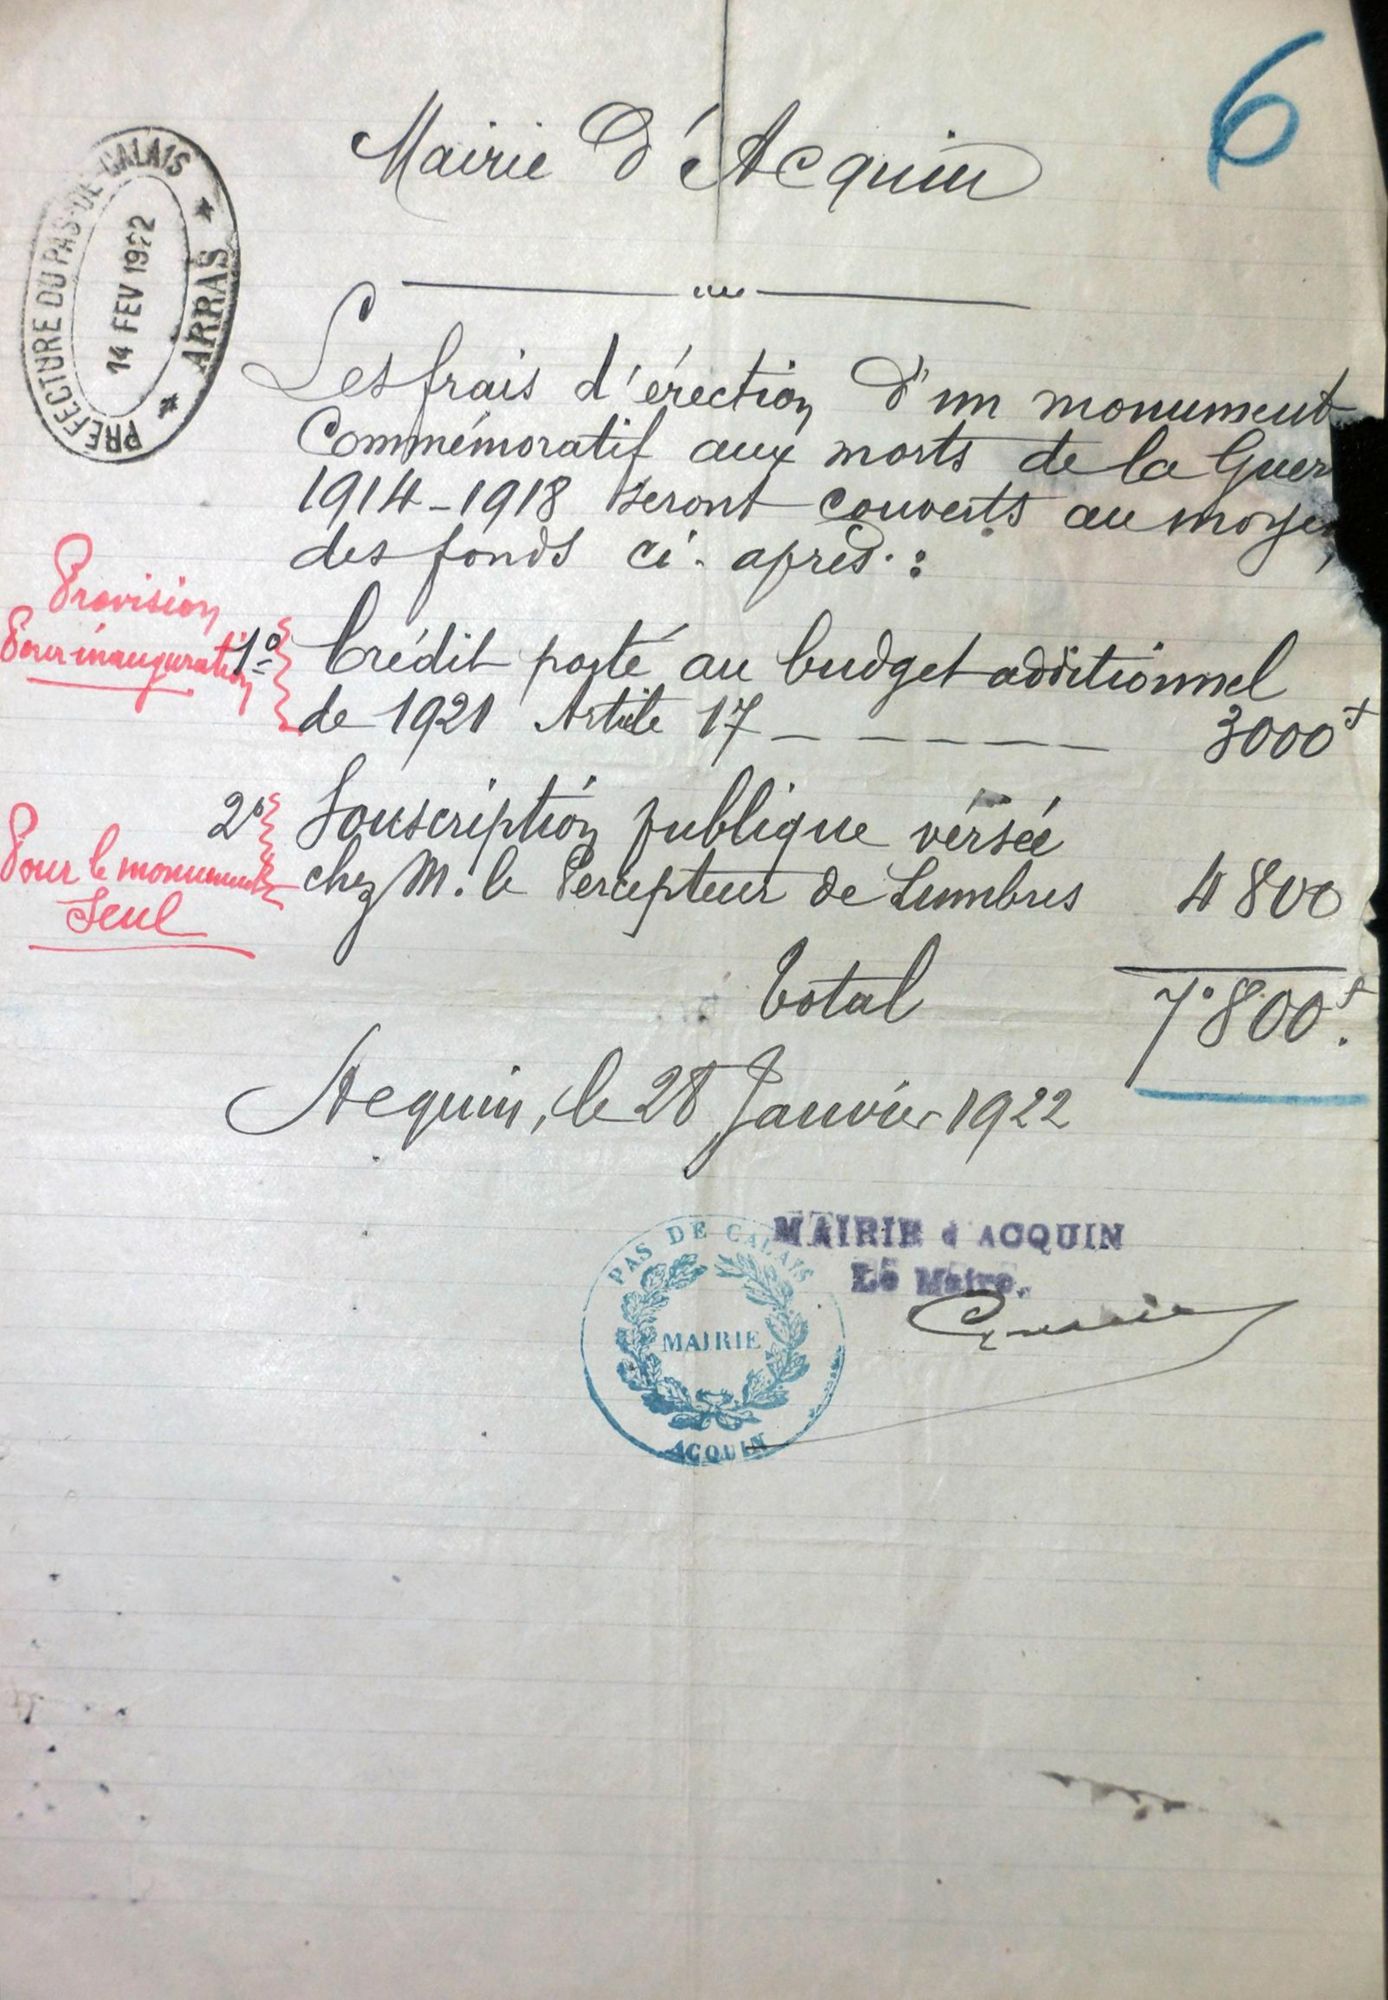 6
Mairie d'Acquin
PREFECTURE DU PAS-DE-CALAIS
14 FEV 1922
* ARRAS *
Les frais d'érection d'un monument
Commémoratif aux morts de la Guer
1914-1918 seront couverts au moyen
des fonds ci-après :
Provision
Pour inauguration
1º Crédit porté au budget additionnel
de 1921 Article 17 ------ 3000f
2º Souscription publique versée
chez M. le Percepteur de Lumbres 4800
Pour le monument
Seul
Total 7.800f.
Acquin, le 28 Janvier 1922
MAIRIE d'ACQUIN
Le Maire.
PAS DE CALAIS
MAIRIE
ACQUIN